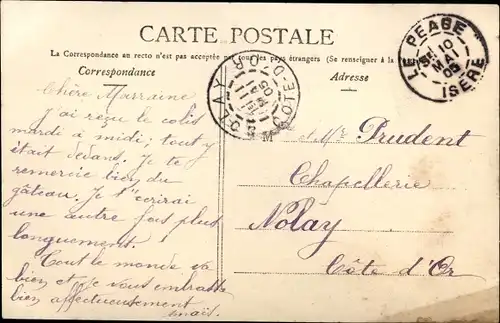 CARTE POSTALE
La Correspondance au recto n'est pas acceptée par tous les pays étrangers (Se renseigner à la
Correspondance
Adresse
LE PEAGE
10
MAI
05
ISERE
NOLAY
COTE-D'OR
Chère Marraine
J'ai reçu le colis
mardi à midi; tout y
était dedans. Je te
remercie bien du
gâteau. Je t'écrirai
une autre fois plus
longuement.
Tout le monde va
bien et je vous embrasse
bien affectueusement
M
et Me Prudent
Chapellerie
Nolay
Côte d'Or